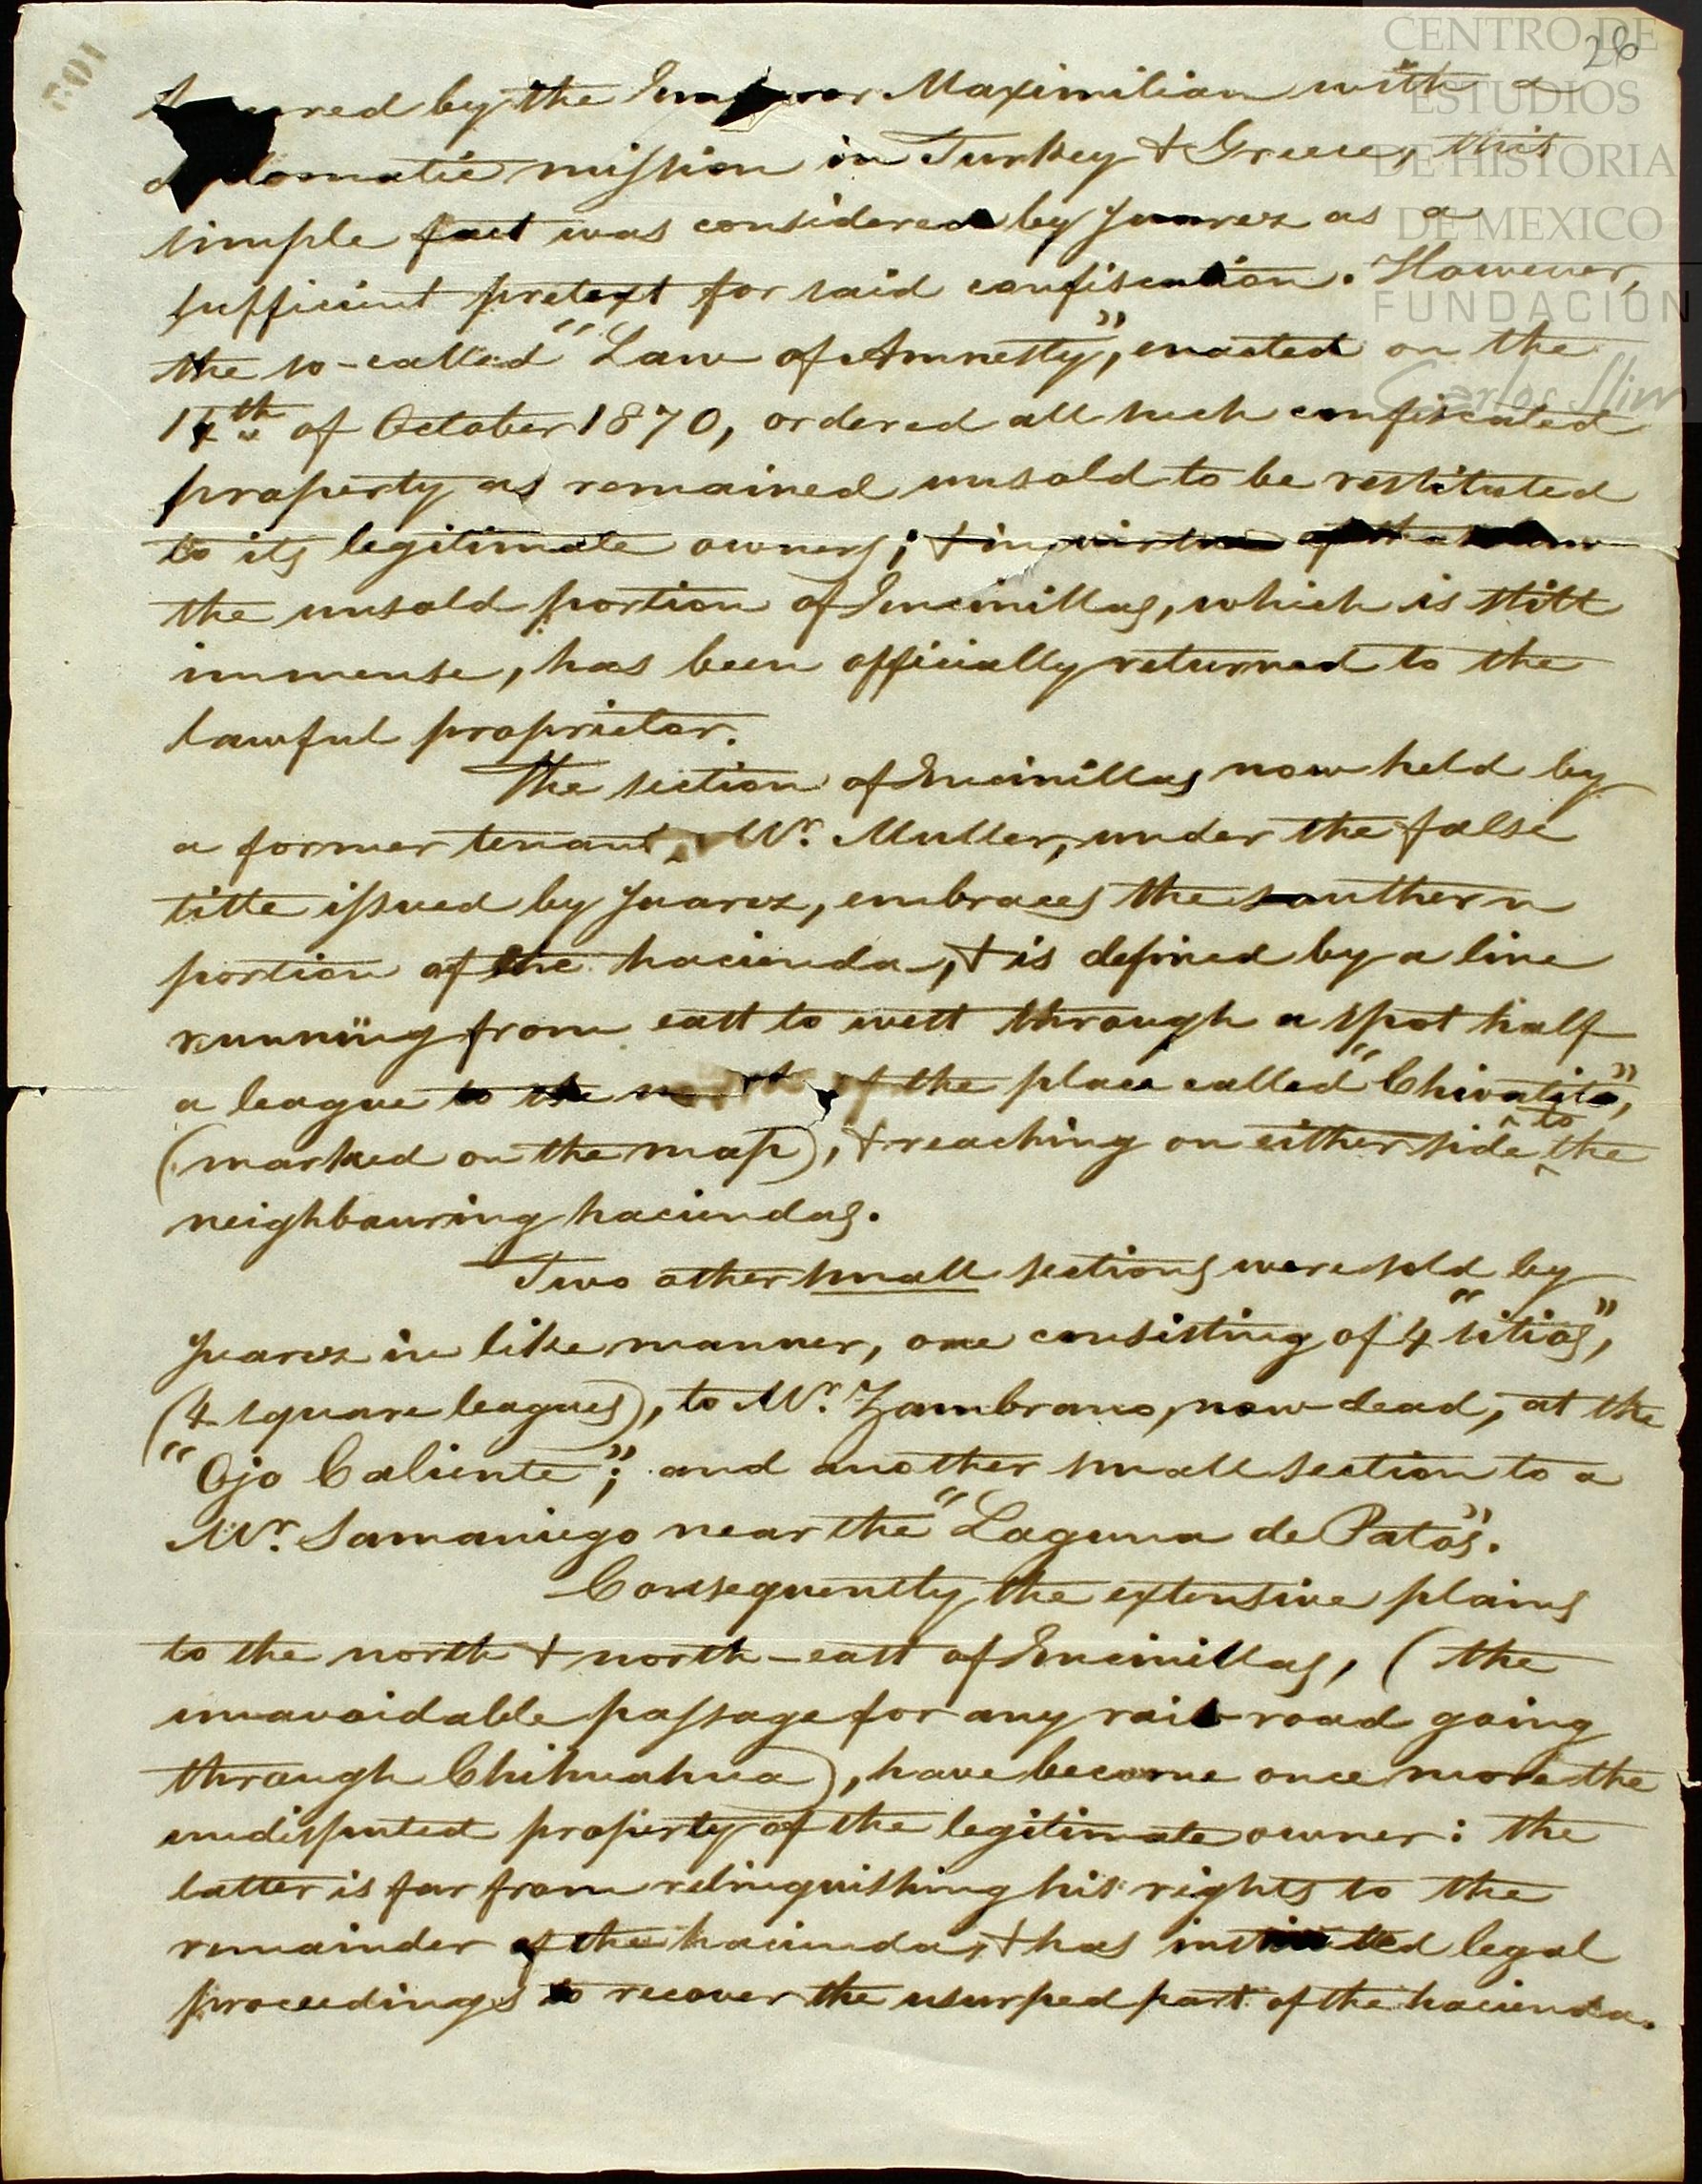 26
by the Emperor Maximilian with a
mission in Turkey & Greece, this
simple fact was considered by Juarez as a
sufficient pretext for said confiscation. However,
the so-called "Law of Amnesty", enacted on the
14th of October 1870, ordered all such confiscated
property as remained unsold to be restituted
to its legitimate owners; & in virtue of that law
the unsold portion of Encinillas, which is still
immense, has been officially returned to the
lawful proprietor.
The section of Encinillas now held by
a former tenant, Mr. Muller, under the false
title issued by Juarez, embraces the southern
portion of the hacienda, & is defined by a line
running from east to west through a spot half
a league to the north of the place called "Chivatito",
(marked on the map), & reaching on either side to the
neighbouring haciendas.
Two other small sections were sold by
Juarez in like manner, one consisting of 4 "sitios",
(4 square leagues), to Mr. Zambrano, now dead, at the
"Ojo Caliente"; and another small section to a
Mr. Samaniego near the "Laguna de Patos".
Consequently the extensive plains
to the north & north-east of Encinillas, (the
unavoidable passage for any rail-road going
through Chihuahua), have become once more the
undisputed property of the legitimate owner: the
latter is far from relinquishing his rights to the
remainder of the hacienda, & has instituted legal
proceedings to recover the usurped part of the hacienda.
CENTRO DE
ESTUDIOS
DE HISTORIA
DE MEXICO
FUNDACIÓN
Carlos Slim